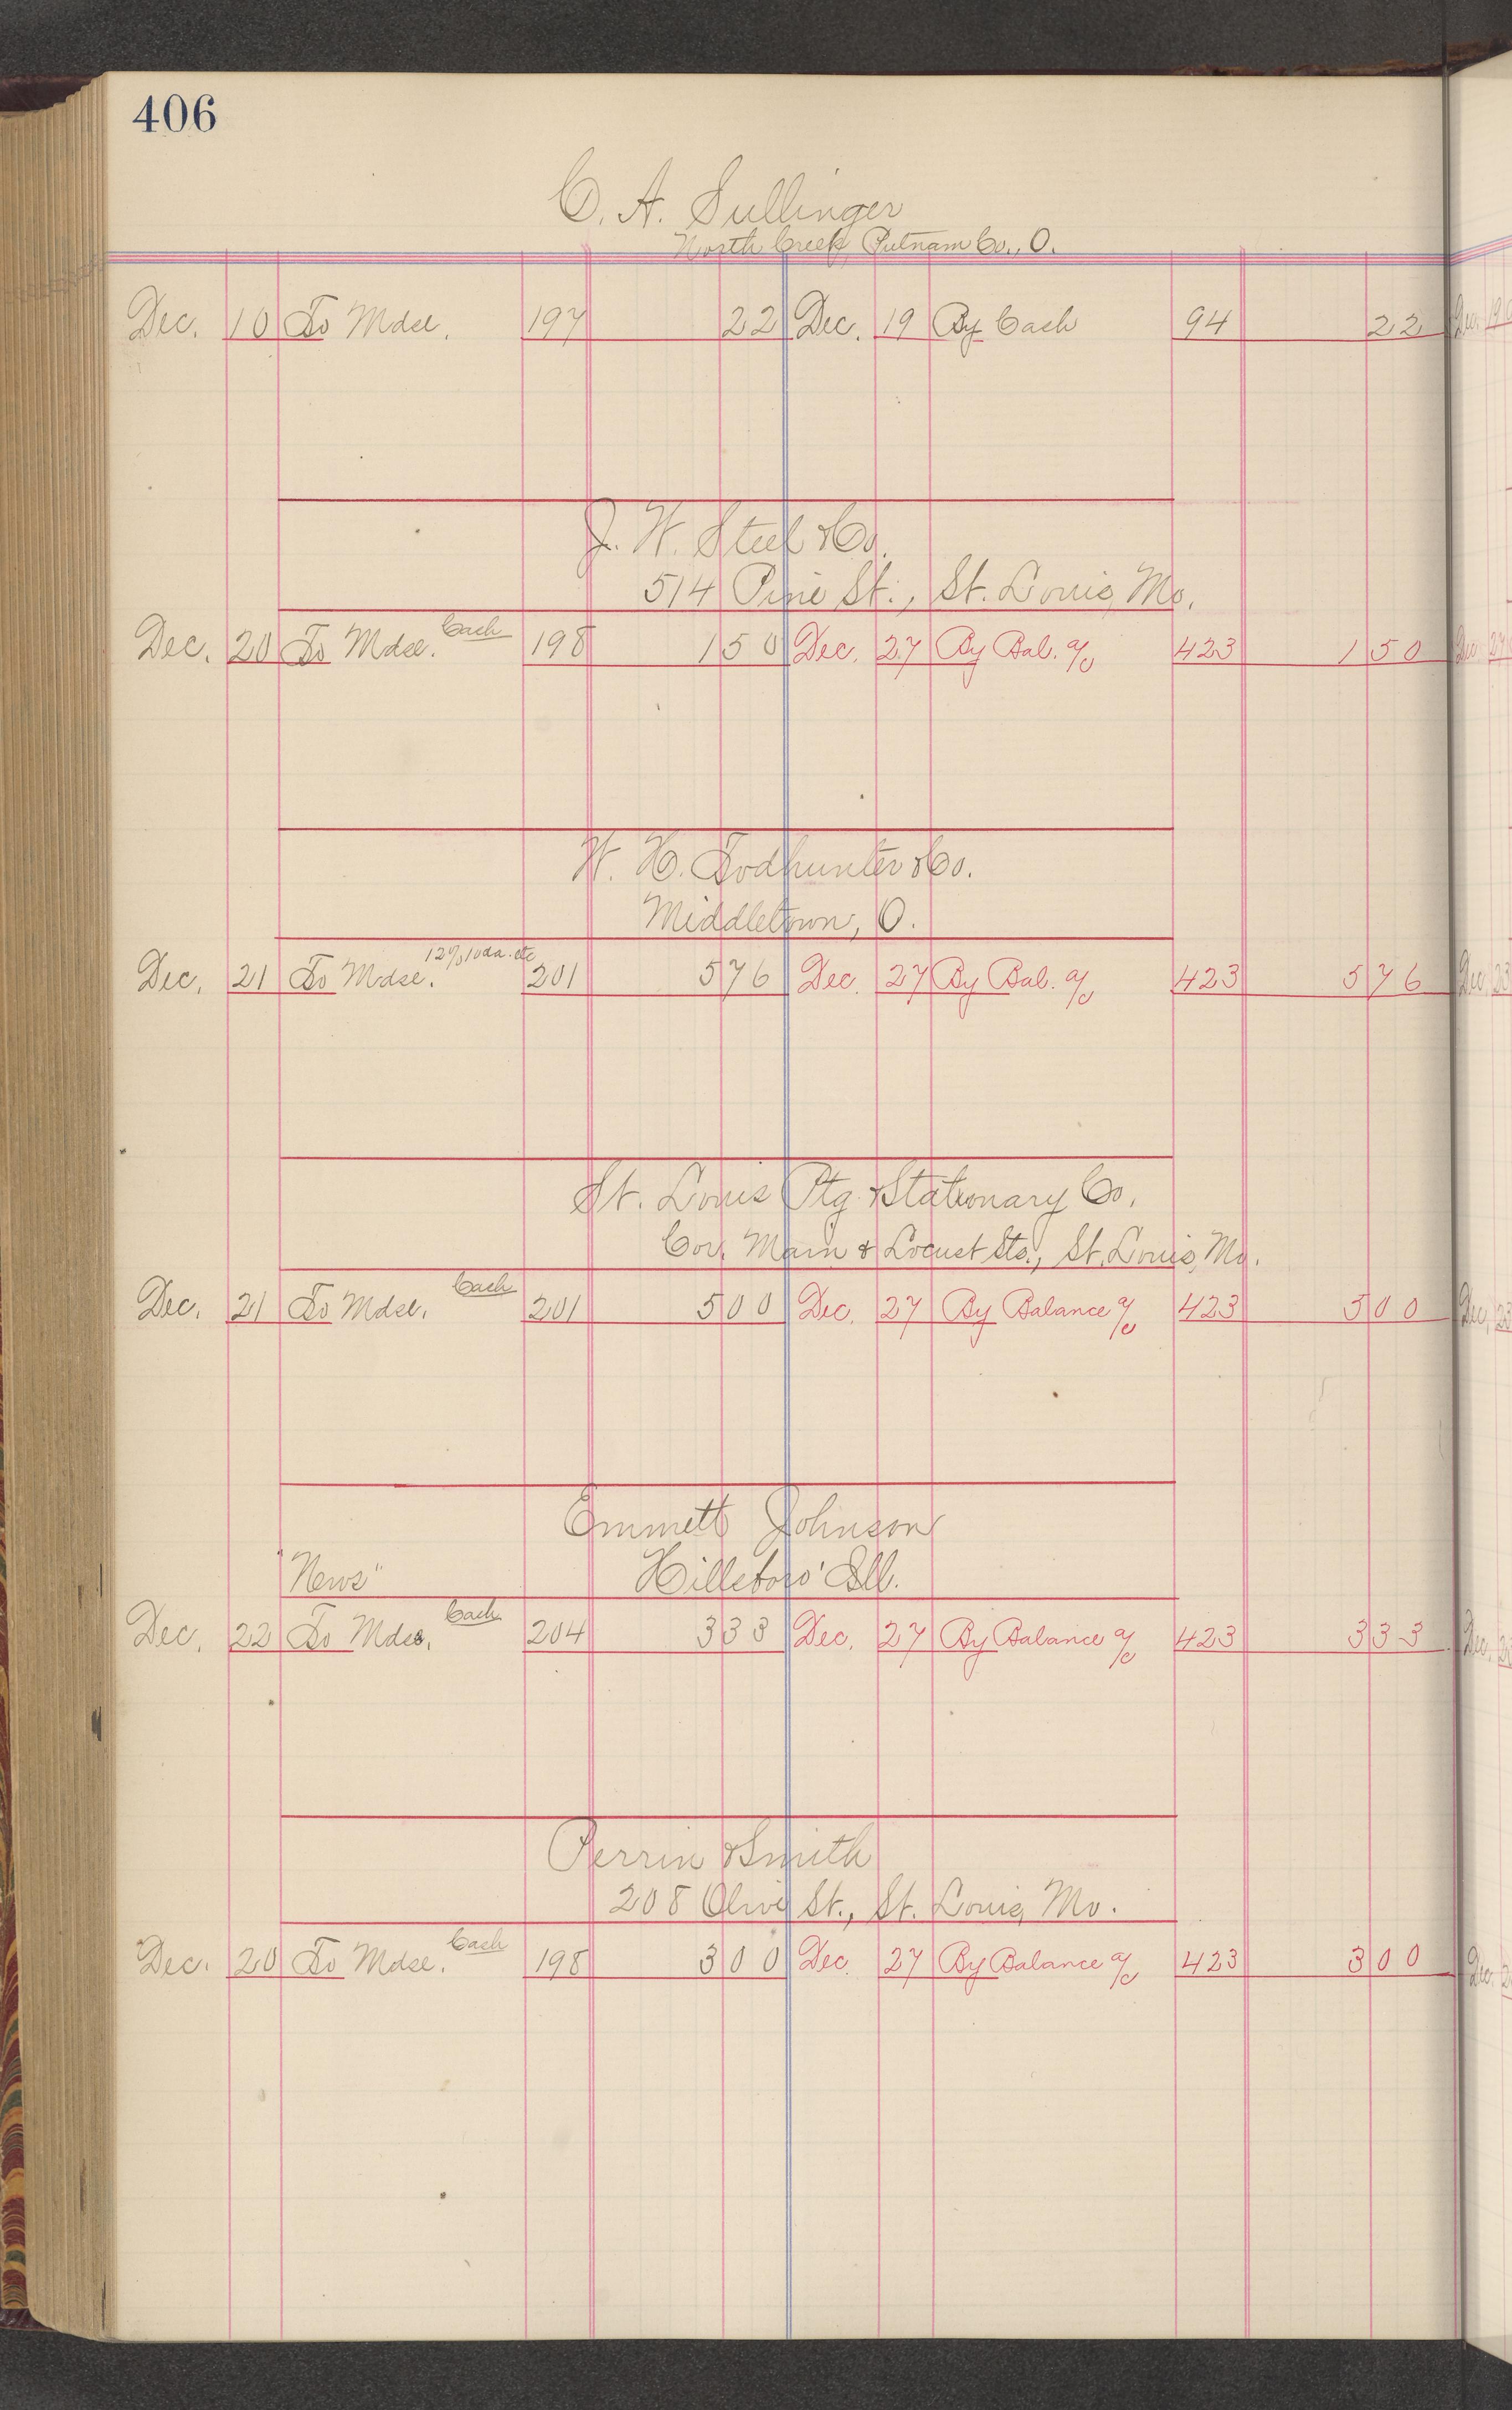 406
C. A. Sullinger
North Creek, Putnam Co., O.
Dec. 10 To Mdse. 197 22 Dec. 19 By Cash 94 22
J. W. Steel & Co.
514 Pine St., St. Louis, Mo.
Dec. 20 To Mdse. Cash 198 1 50 Dec. 27 By Bal. a/c 423 1 50
W. H. Todhunter & Co.
Middletown, O.
Dec. 21 To Mdse. 12% 10 da. etc 201 5 76 Dec. 27 By Bal. a/c 423 5 76
St. Louis Ptg & Stationary Co.
Cor. Main & Locust Sts., St. Louis, Mo.
Dec. 21 To Mdse. Cash 201 5 00 Dec. 27 By Balance a/c 423 5 00
Emmett Johnson
"News" Hillsboro' Ill.
Dec. 22 To Mdse. Cash 204 3 33 Dec. 27 By Balance a/c 423 3 33
Perrin & Smith
208 Olive St., St. Louis, Mo.
Dec. 20 To Mdse. Cash 198 3 00 Dec. 27 By Balance a/c 423 3 00